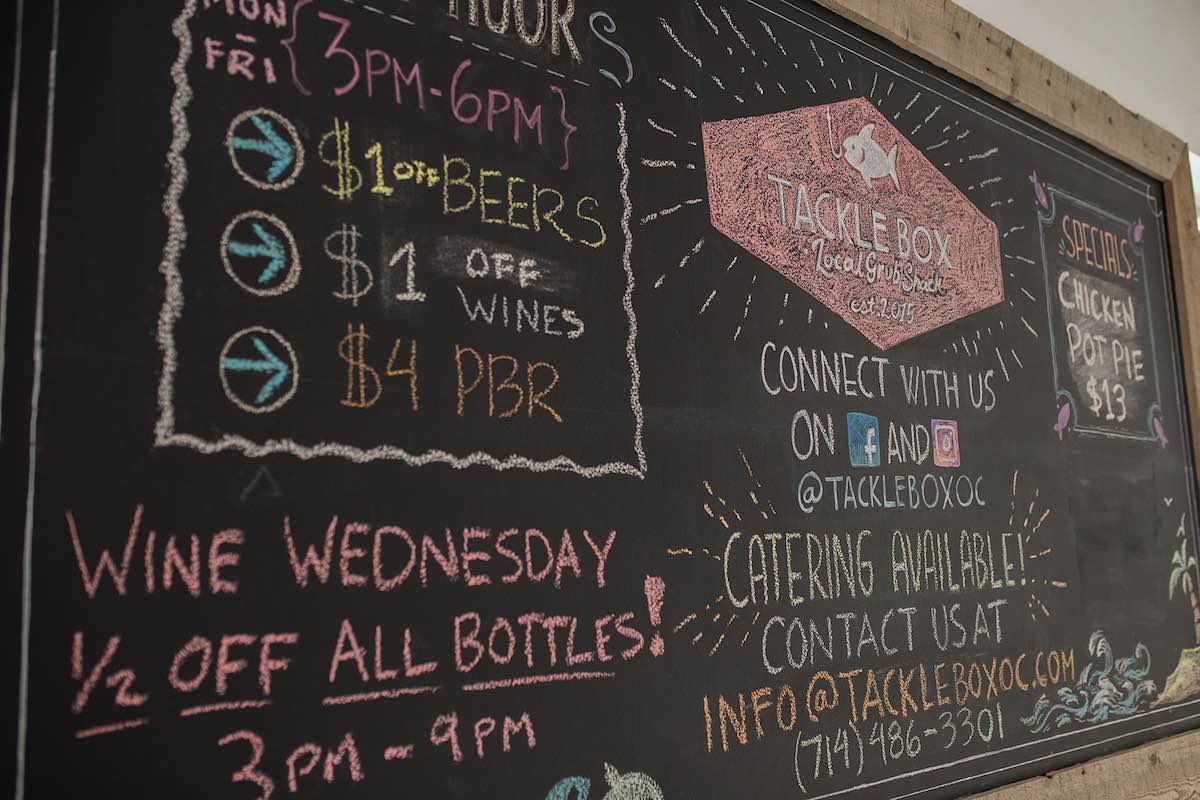 HOUR
MON
–
FRI
{3PM-6PM}
$1 OFF BEERS
$1 OFF
WINES
$4 PBR
WINE WEDNESDAY
1/2 OFF ALL BOTTLES!
3PM-9PM
TACKLE BOX
Local Grub Shack
est. 2015
CONNECT WITH US
ON f AND
@TACKLEBOXOC
CATERING AVAILABLE!
CONTACT US AT
INFO@TACKLEBOXOC.COM
(714) 486-3301
SPECIALS
CHICKEN
POT PIE
$13